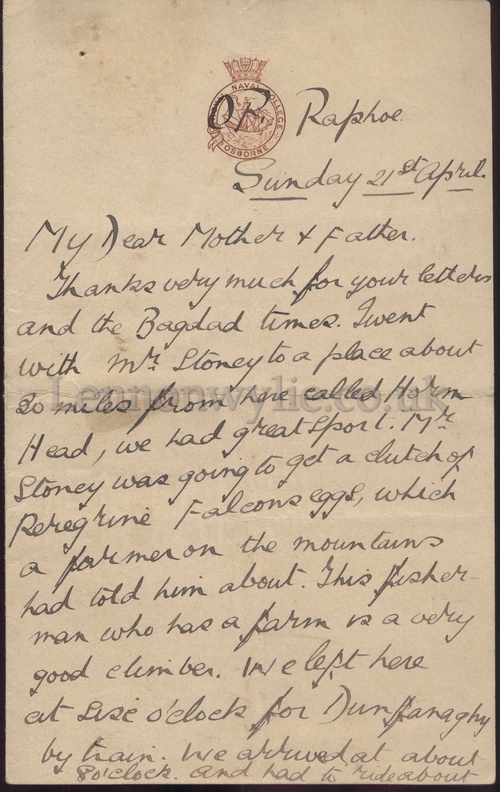 ROYAL NAVAL COLLEGE
OSBORNE
Raphoe.
Sunday 21st April.
My Dear Mother & Father.
Thanks very much for your letters
and the Bagdad times. I went
with Mr. Stoney to a place about
20 miles from here called Horn
Head, we had great sport. Mr.
Stoney was going to get a clutch of
Peregrine Falcons eggs, which
a farmer on the mountains
had told him about. This fisher-
man who has a farm is a very
good climber. We left here
at sixe o'clock for Dunfanaghy
by train. We arrived at about
8 o'clock. and had to ride about
Lennonwylie.co.uk